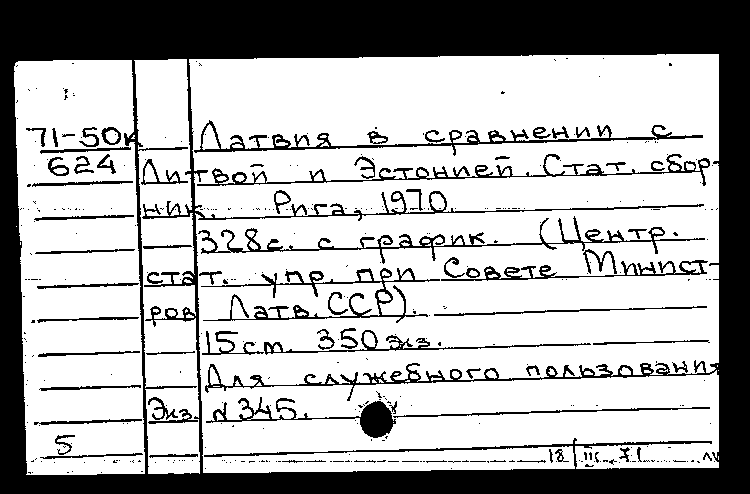 71-50к Латвия в сравнении с
624 Литвой и Эстонией. Стат. сбор-
ник. Рига, 1970.
328с. с график. (Центр.
стат. упр. при Совете Минист-
ров Латв. ССР).
15 см. 350 экз.
Для служебного пользования
Экз. № 345.
5
18/III-71